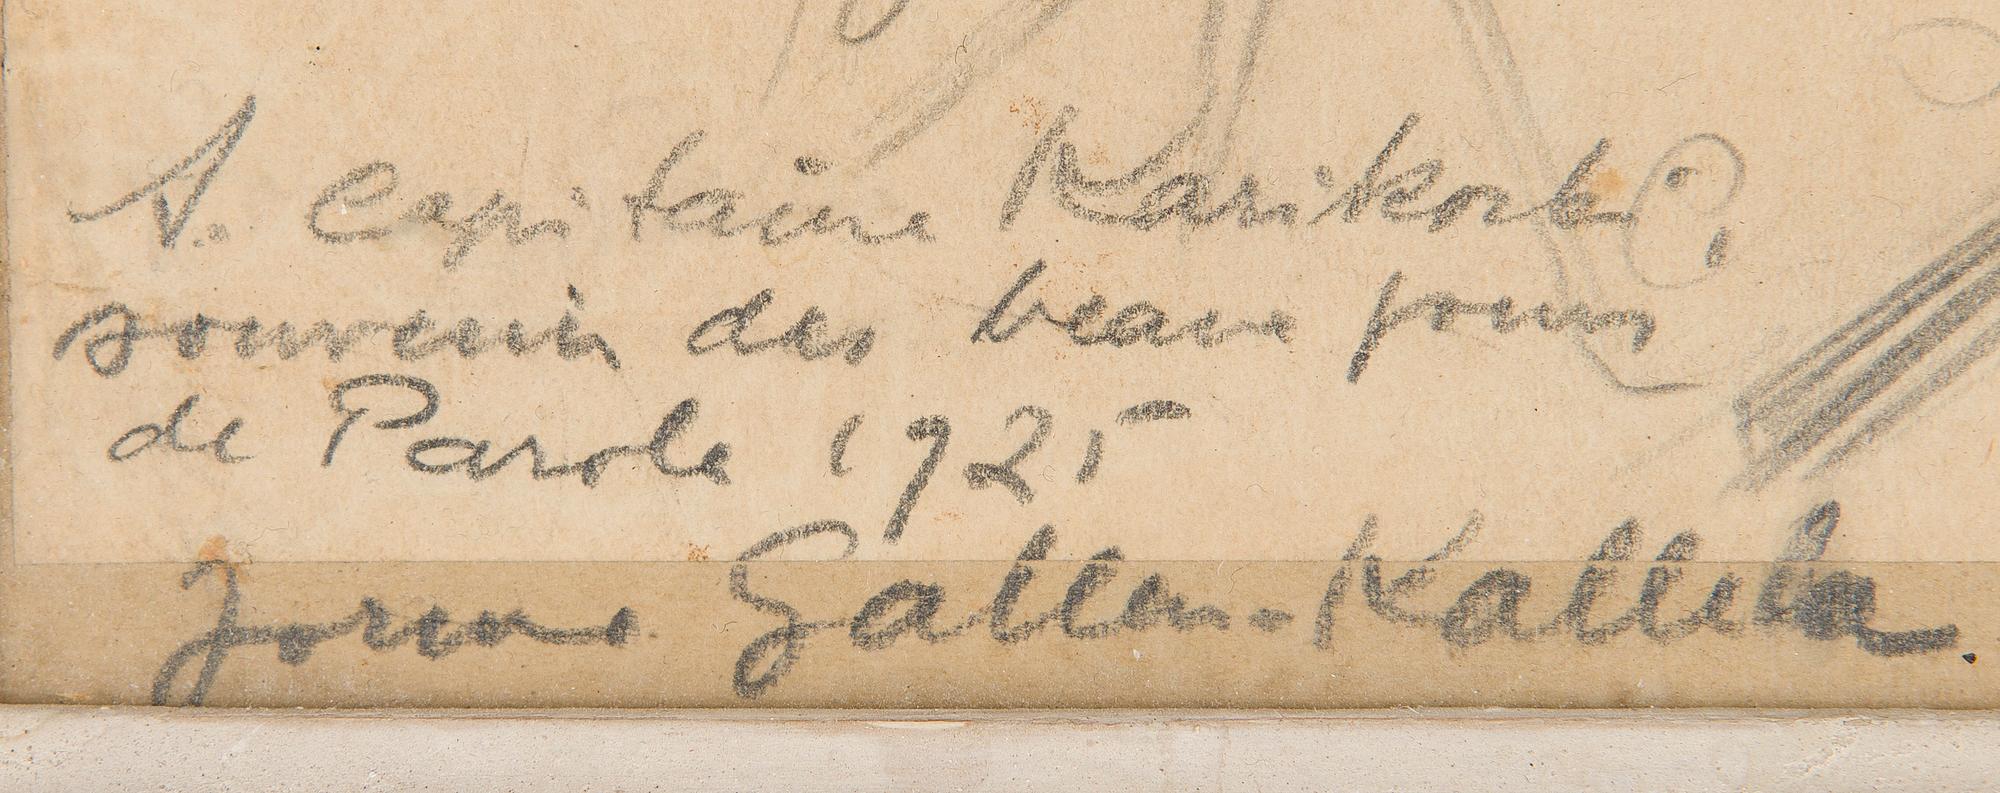 A. Capitaine Karikoski,
souvenir des beaux jours
de Parola 1925
Jorma Gallen-Kallela.